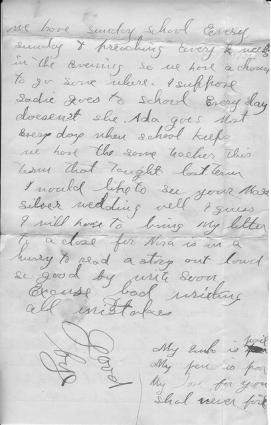 we have Sunday school Every
Sunday & preaching Every 2 weeks
in the Evening so we have a chance
to go some where. I suppose
Sadie goes to school Every day
doesent she Ada goes most
Every day when school keeps
we have the same teacher this
term that taught last term
I would like to see your Mas
silver wedding well I guess
I will have to bring my letter
to a close for Nora is in a
hurry to read a story out loud
so good by write soon
Excuse bad writing
all mistakes
Good
bye
My ink is
My pen is poor
My love for you
Shal never